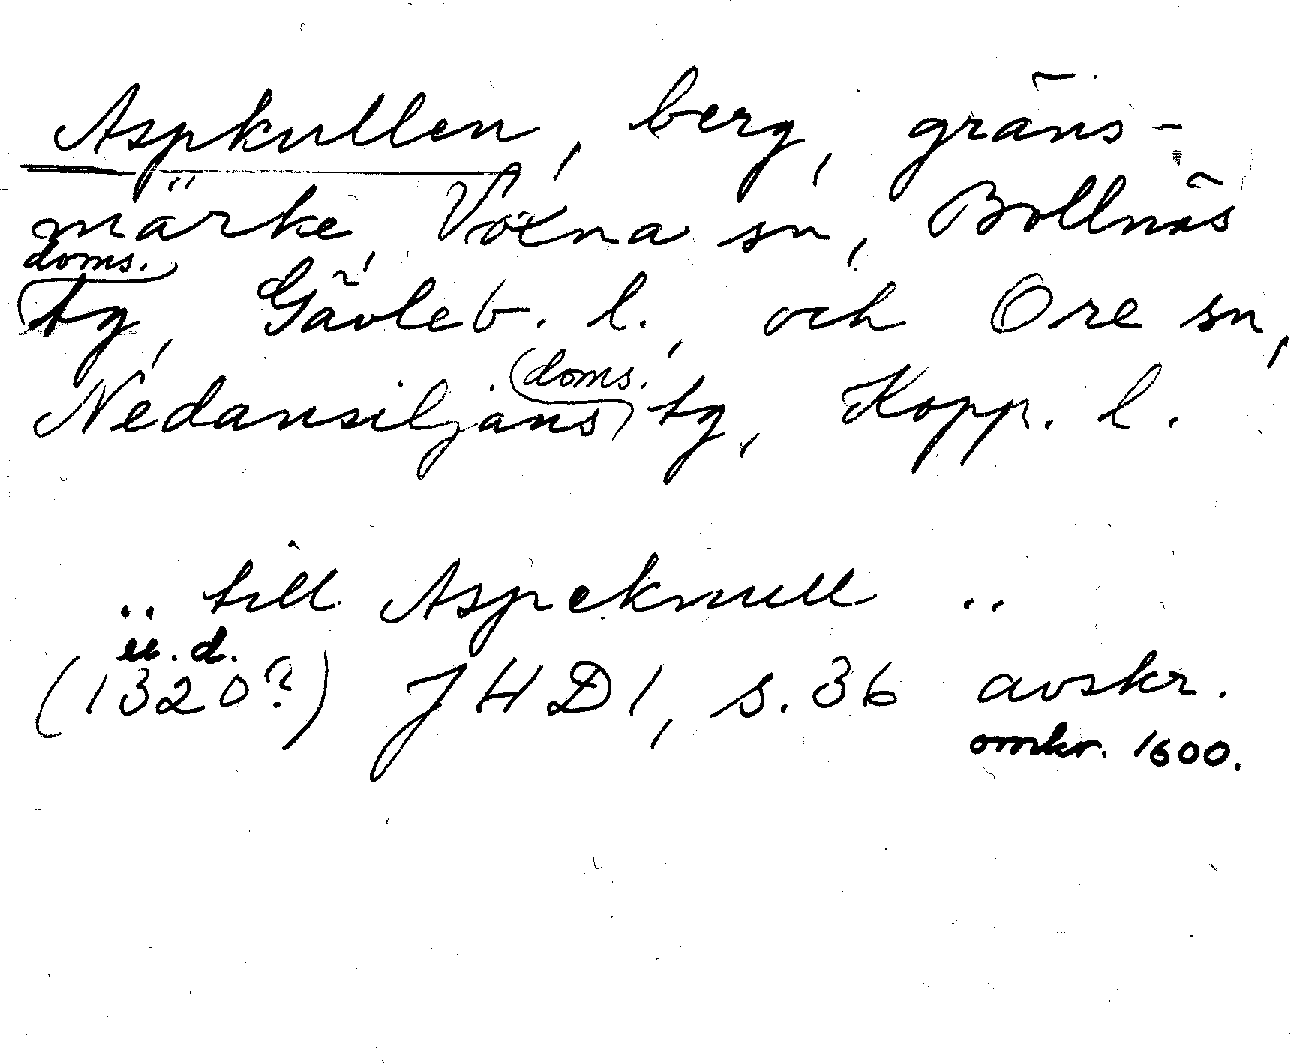 Aspkullen, berg, gräns-
märke, Voxna sn, Bollnäs
doms.
tg, Gävleb. l., och Ore sn,
doms.
Nedansiljans tg, Kopp. l.
.. till Aspekmull ..
u. d.
(1320?) JHD1, s. 36 avskr.
omkr. 1600.